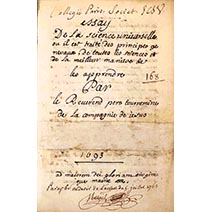 Collegio Paris. Societ. Jesu
essay
De la science universelle
ou il est traité des principes ge
neraux de toutes les sciences et
de la meilleur maniere de
les apprendre
168
Par
le Reverend pere tournemine
de la compagnie de iesus
1693
ad maiorem dei gloriam virginis
que mariæ